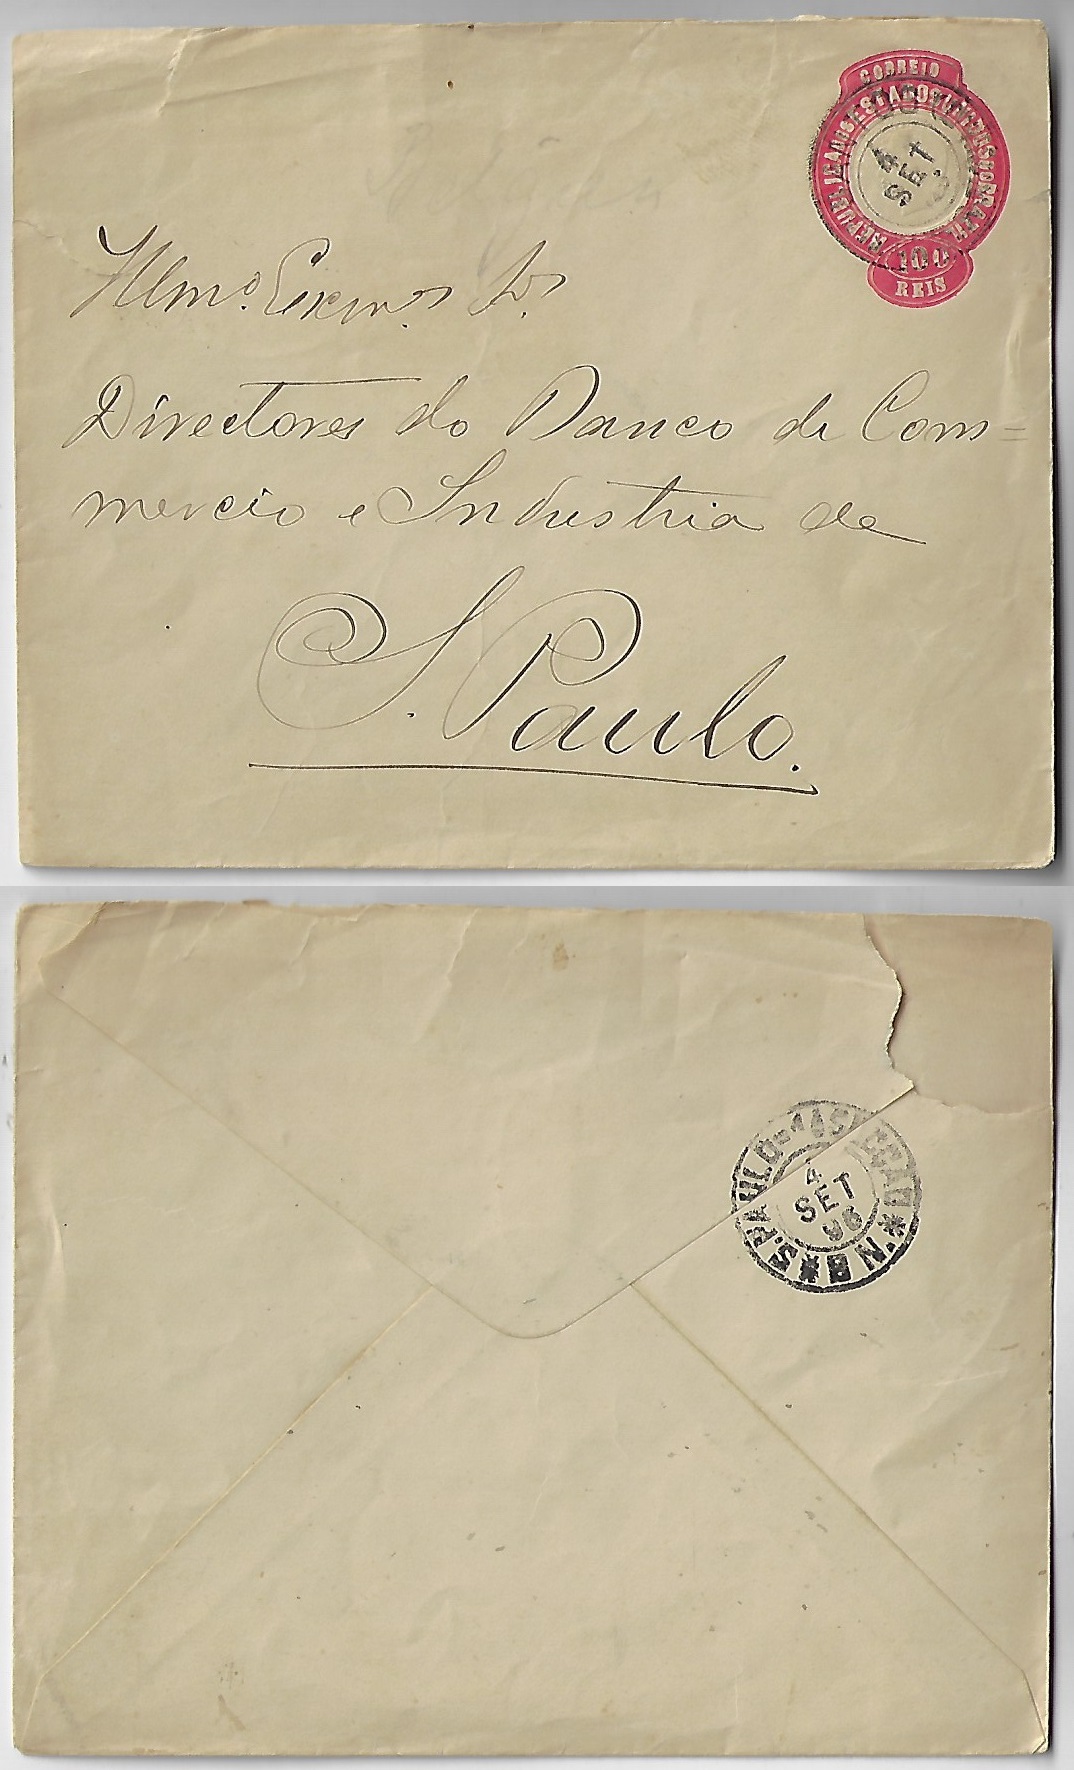 CORREIO
REPUBLICA DOS ESTADOS UNIDOS DO BRAZIL
4
SET
100
REIS
Illmos. Exmos. Srs.
Directores do Banco de Com=
mercio e Industria de
S. Paulo.
S. PAULO - 1ª SECÇÃO
4
SET
96
* N B *